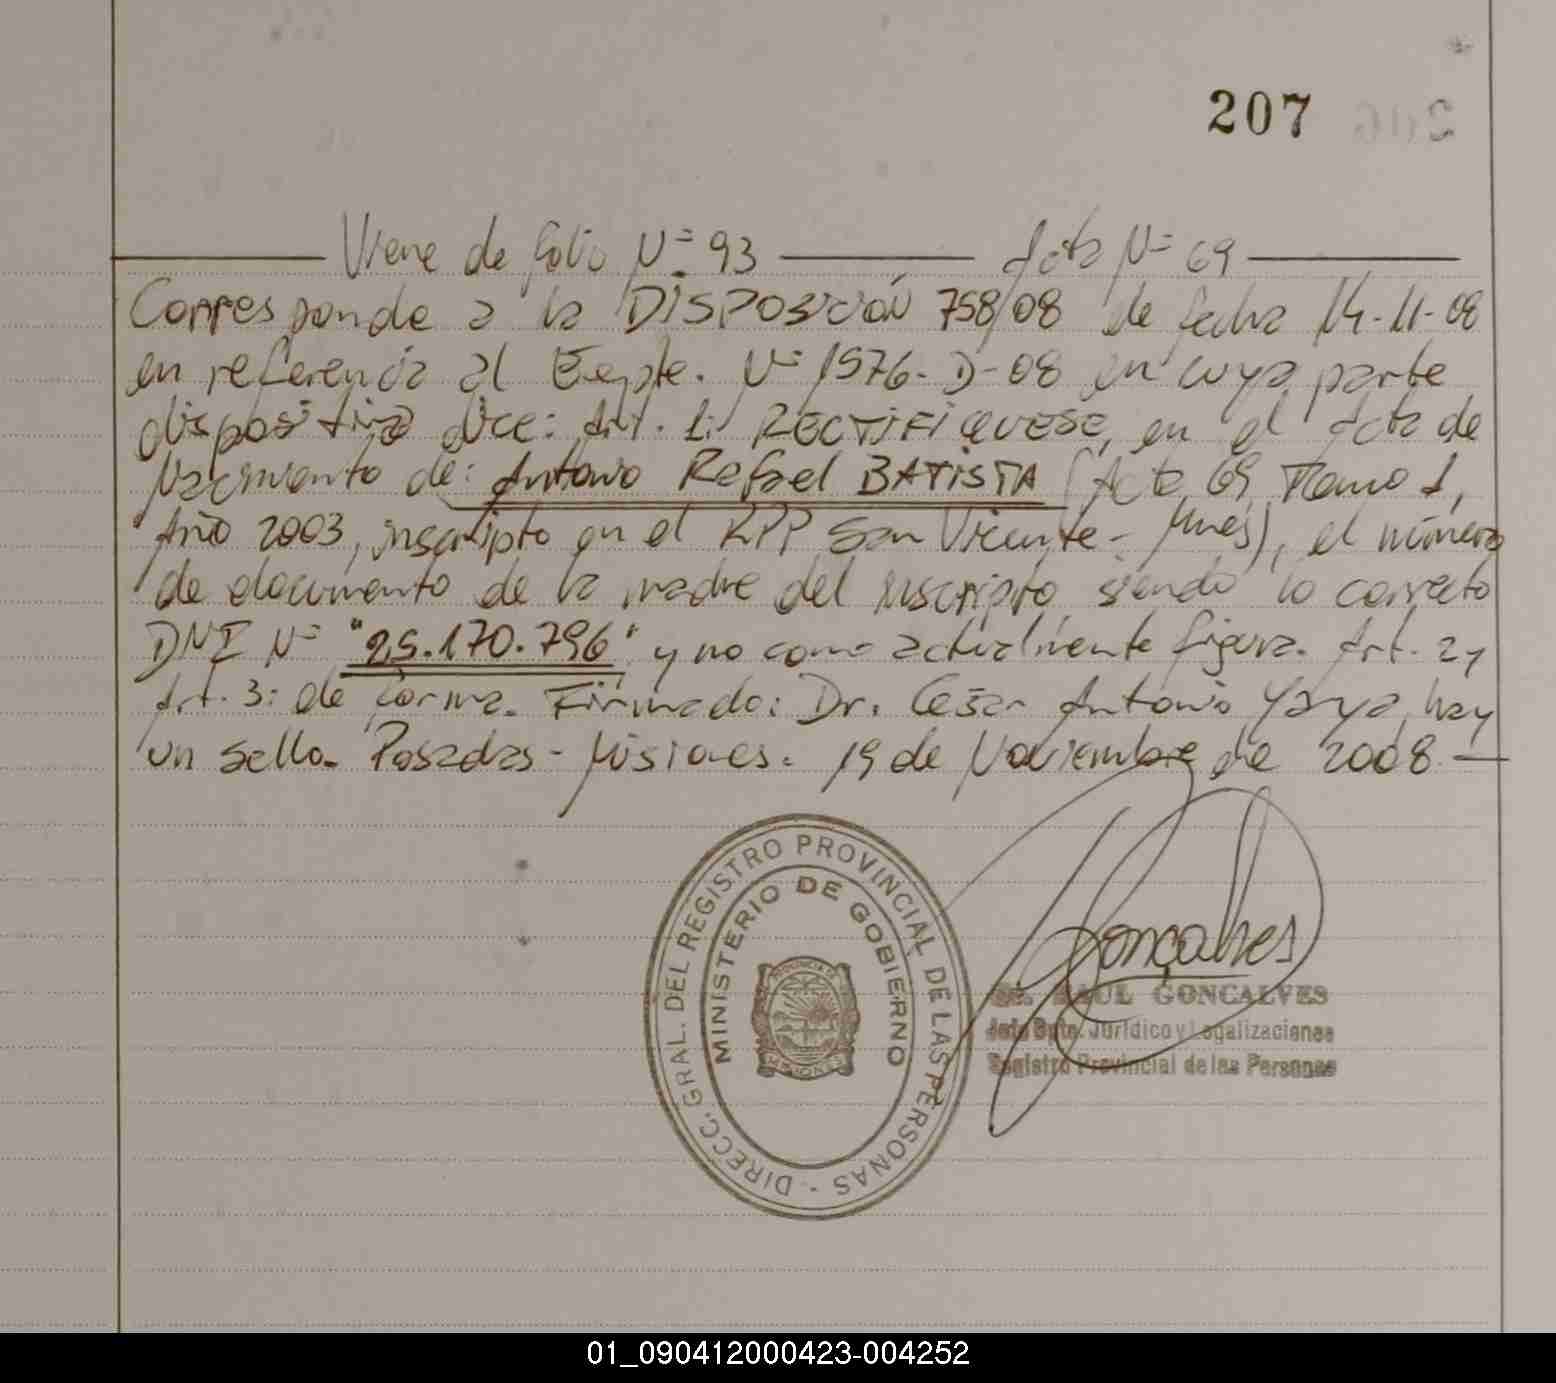 207
Viene de folio Nº 93 Acta Nº 69
Corresponde a la DISPOSICIÓN 758/08 de fecha 14-11-08
en referencia al Expte. Nº 1576-D-08 en cuya parte
dispositiva dice: Art. 1: RECTIFIQUESE, en el Acta de
Nacimiento de: Antonio Rafael BATISTA (Acta 69, Tomo 1,
Año 2003, inscripto en el RPP San Vicente - Mnes), el número
de documento de la madre del inscripto, siendo lo correcto
DNI Nº "25.170.796" y no como actualmente figura. Art. 2 y
Art. 3: de forma. Firmado: Dr. César Antonio Yaya, hay
un sello. Posadas - Misiones. 19 de Noviembre de 2008
DIRECC. GRAL. DEL REGISTRO PROVINCIAL DE LAS PERSONAS -
MINISTERIO DE GOBIERNO
PROVINCIA D
MISIONES
Gonçalves
Dr. RAUL GONCALVES
Jefe Dpto. Jurídico y Legalizaciones
Registro Provincial de las Personas
01_090412000423-004252